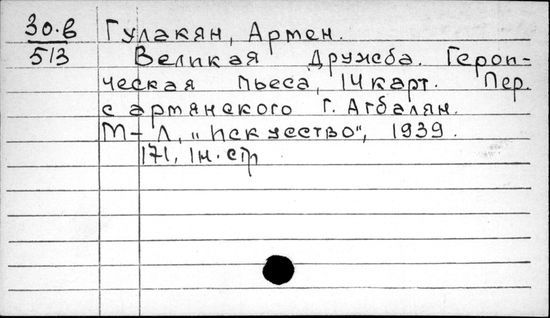 30.в Гулакян, Армен.
513 Великая Дружба. Герои-
ческая пьеса, 14 карт. Пер.
с армянского Г. Агбалян.
М-Л, "Искусство", 1939.
171, 1н. стр